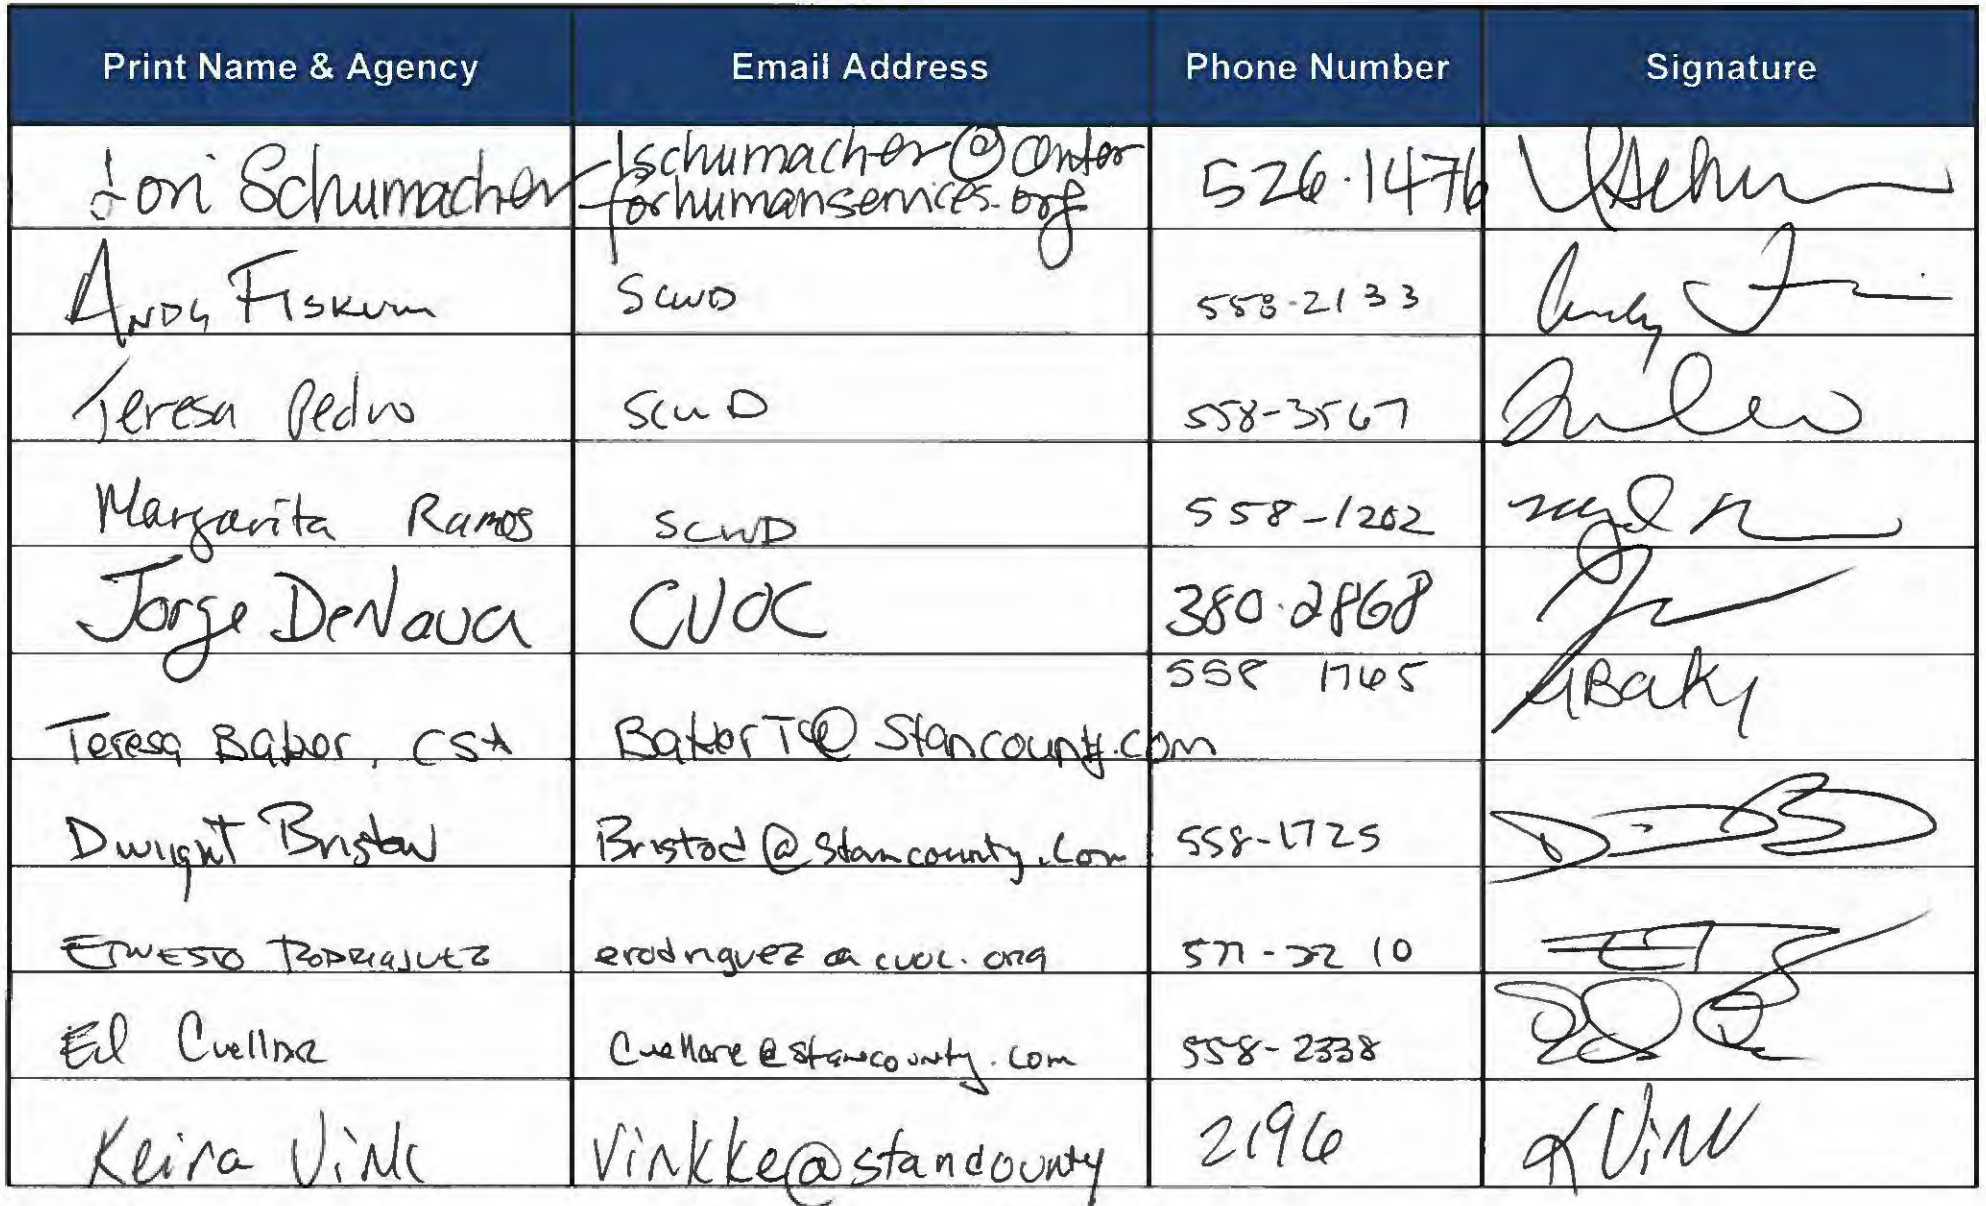 Print Name & Agency Email Address Phone Number Signature
Lori Schumacher lschumacher@center 526.1476
forhumanservices.org
Andy Fiskum SCWD 558-2133
Teresa Pedro SCWD 558-3567
Margarita Ramos SCWD 558-1202
Jorge DeNava CVOC 380.2868
558 1765
Teresa Baker, CSA BakerT@stancounty.com
Dwight Bristow Bristod@stancounty.com 558-1725
ERNESTO RODRIGUEZ erodriguez@cvoc.org 577-3210
Ed Cuellar Cuellare@stancounty.com 558-2338
Keira Vink Vinkke@stancounty 2196 K Vink